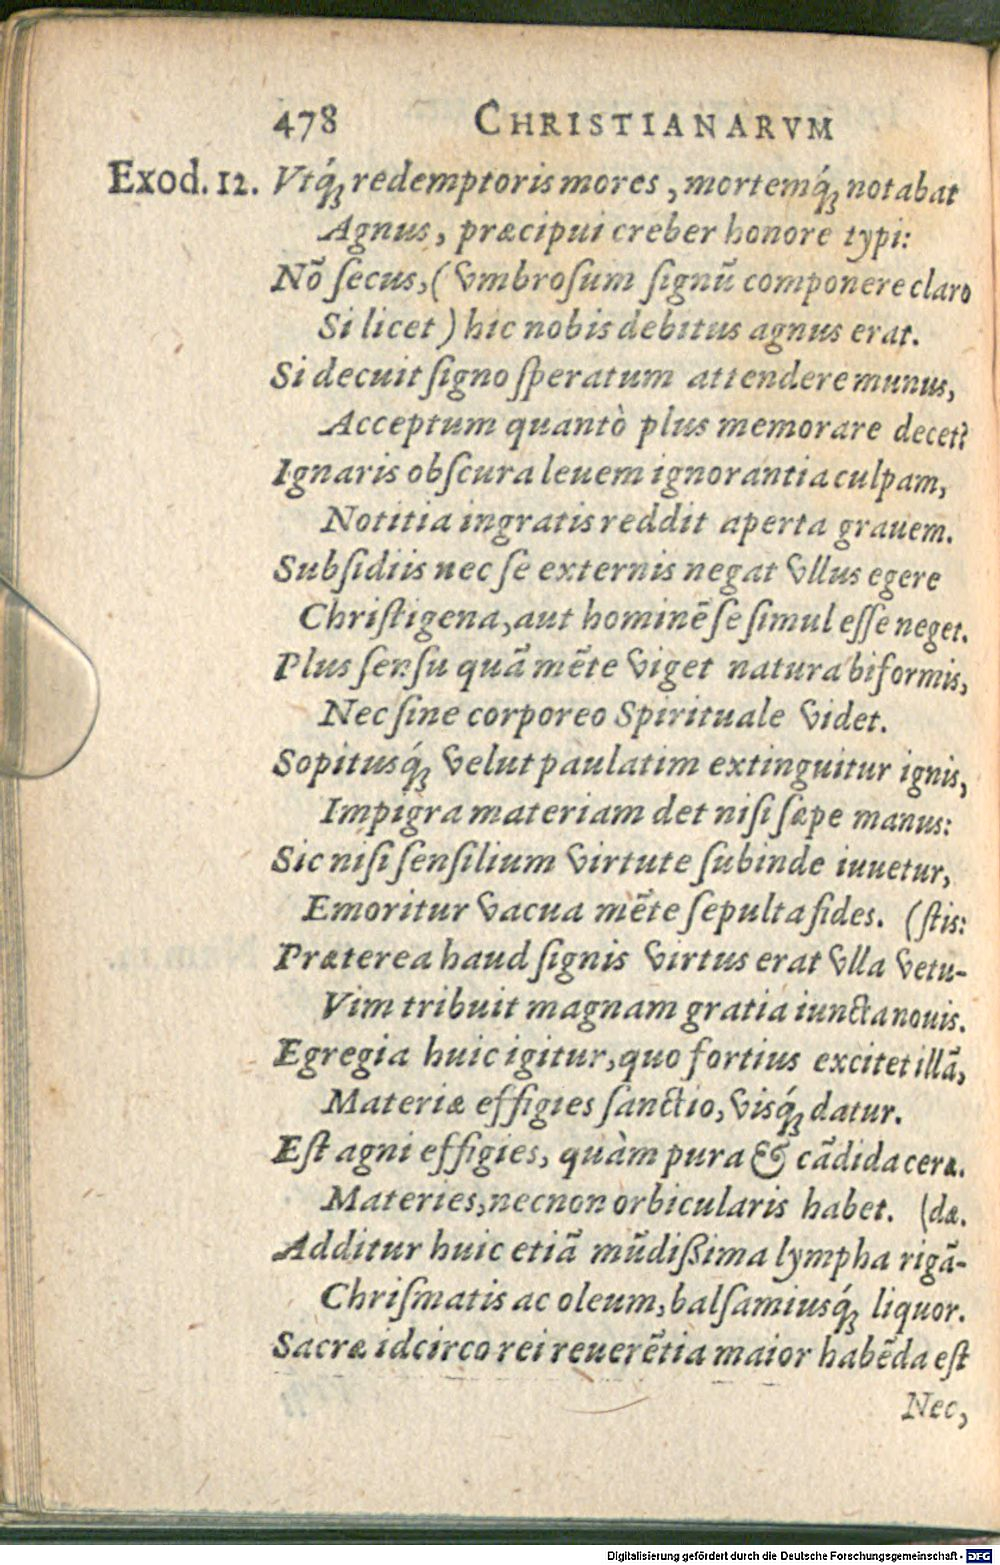 478 CHRISTIANARVM
Exod. 12. Vtq́ꝫ redemptoris mores, mortemq́ꝫ notabat
Agnus, præcipui creber honore typi:
Nõ ſecus, (vmbroſum ſignũ componere claro
Si licet) hic nobis debitus agnus erat.
Si decuit ſigno ſperatum attendere munus,
Acceptum quantò plus memorare decet?
Ignaris obſcura leuem ignorantia culpam,
Notitia ingratis reddit aperta grauem.
Subſidiis nec ſe externis negat vllus egere
Chriſtigena, aut hominẽ ſe ſimul eſſe neget.
Plus ſenſu quã mẽte viget natura biformis,
Nec ſine corporeo Spirituale videt.
Sopitusq́ꝫ velut paulatim extinguitur ignis,
Impigra materiam det niſi ſæpe manus:
Sic niſi ſenſilium virtute ſubinde iuuetur,
Emoritur vacua mẽte ſepulta fides. (ſtis:
Præterea haud ſignis virtus erat vlla vetu-
Vim tribuit magnam gratia iuncta nouis.
Egregia huic igitur, quo fortius excitet illã,
Materiæ effigies ſanctio, visq́ꝫ datur.
Eſt agni effigies, quàm pura & cãdida ceræ.
Materies, necnon orbicularis habet. (dæ.
Additur huic etiã mũdißima lympha rigã-
Chriſmatis ac oleum, balſamiusq́ꝫ liquor.
Sacræ idcirco rei reuerẽtia maior habẽda eſt
Nec,
Digitalisierung gefördert durch die Deutsche Forschungsgemeinschaft - DFG